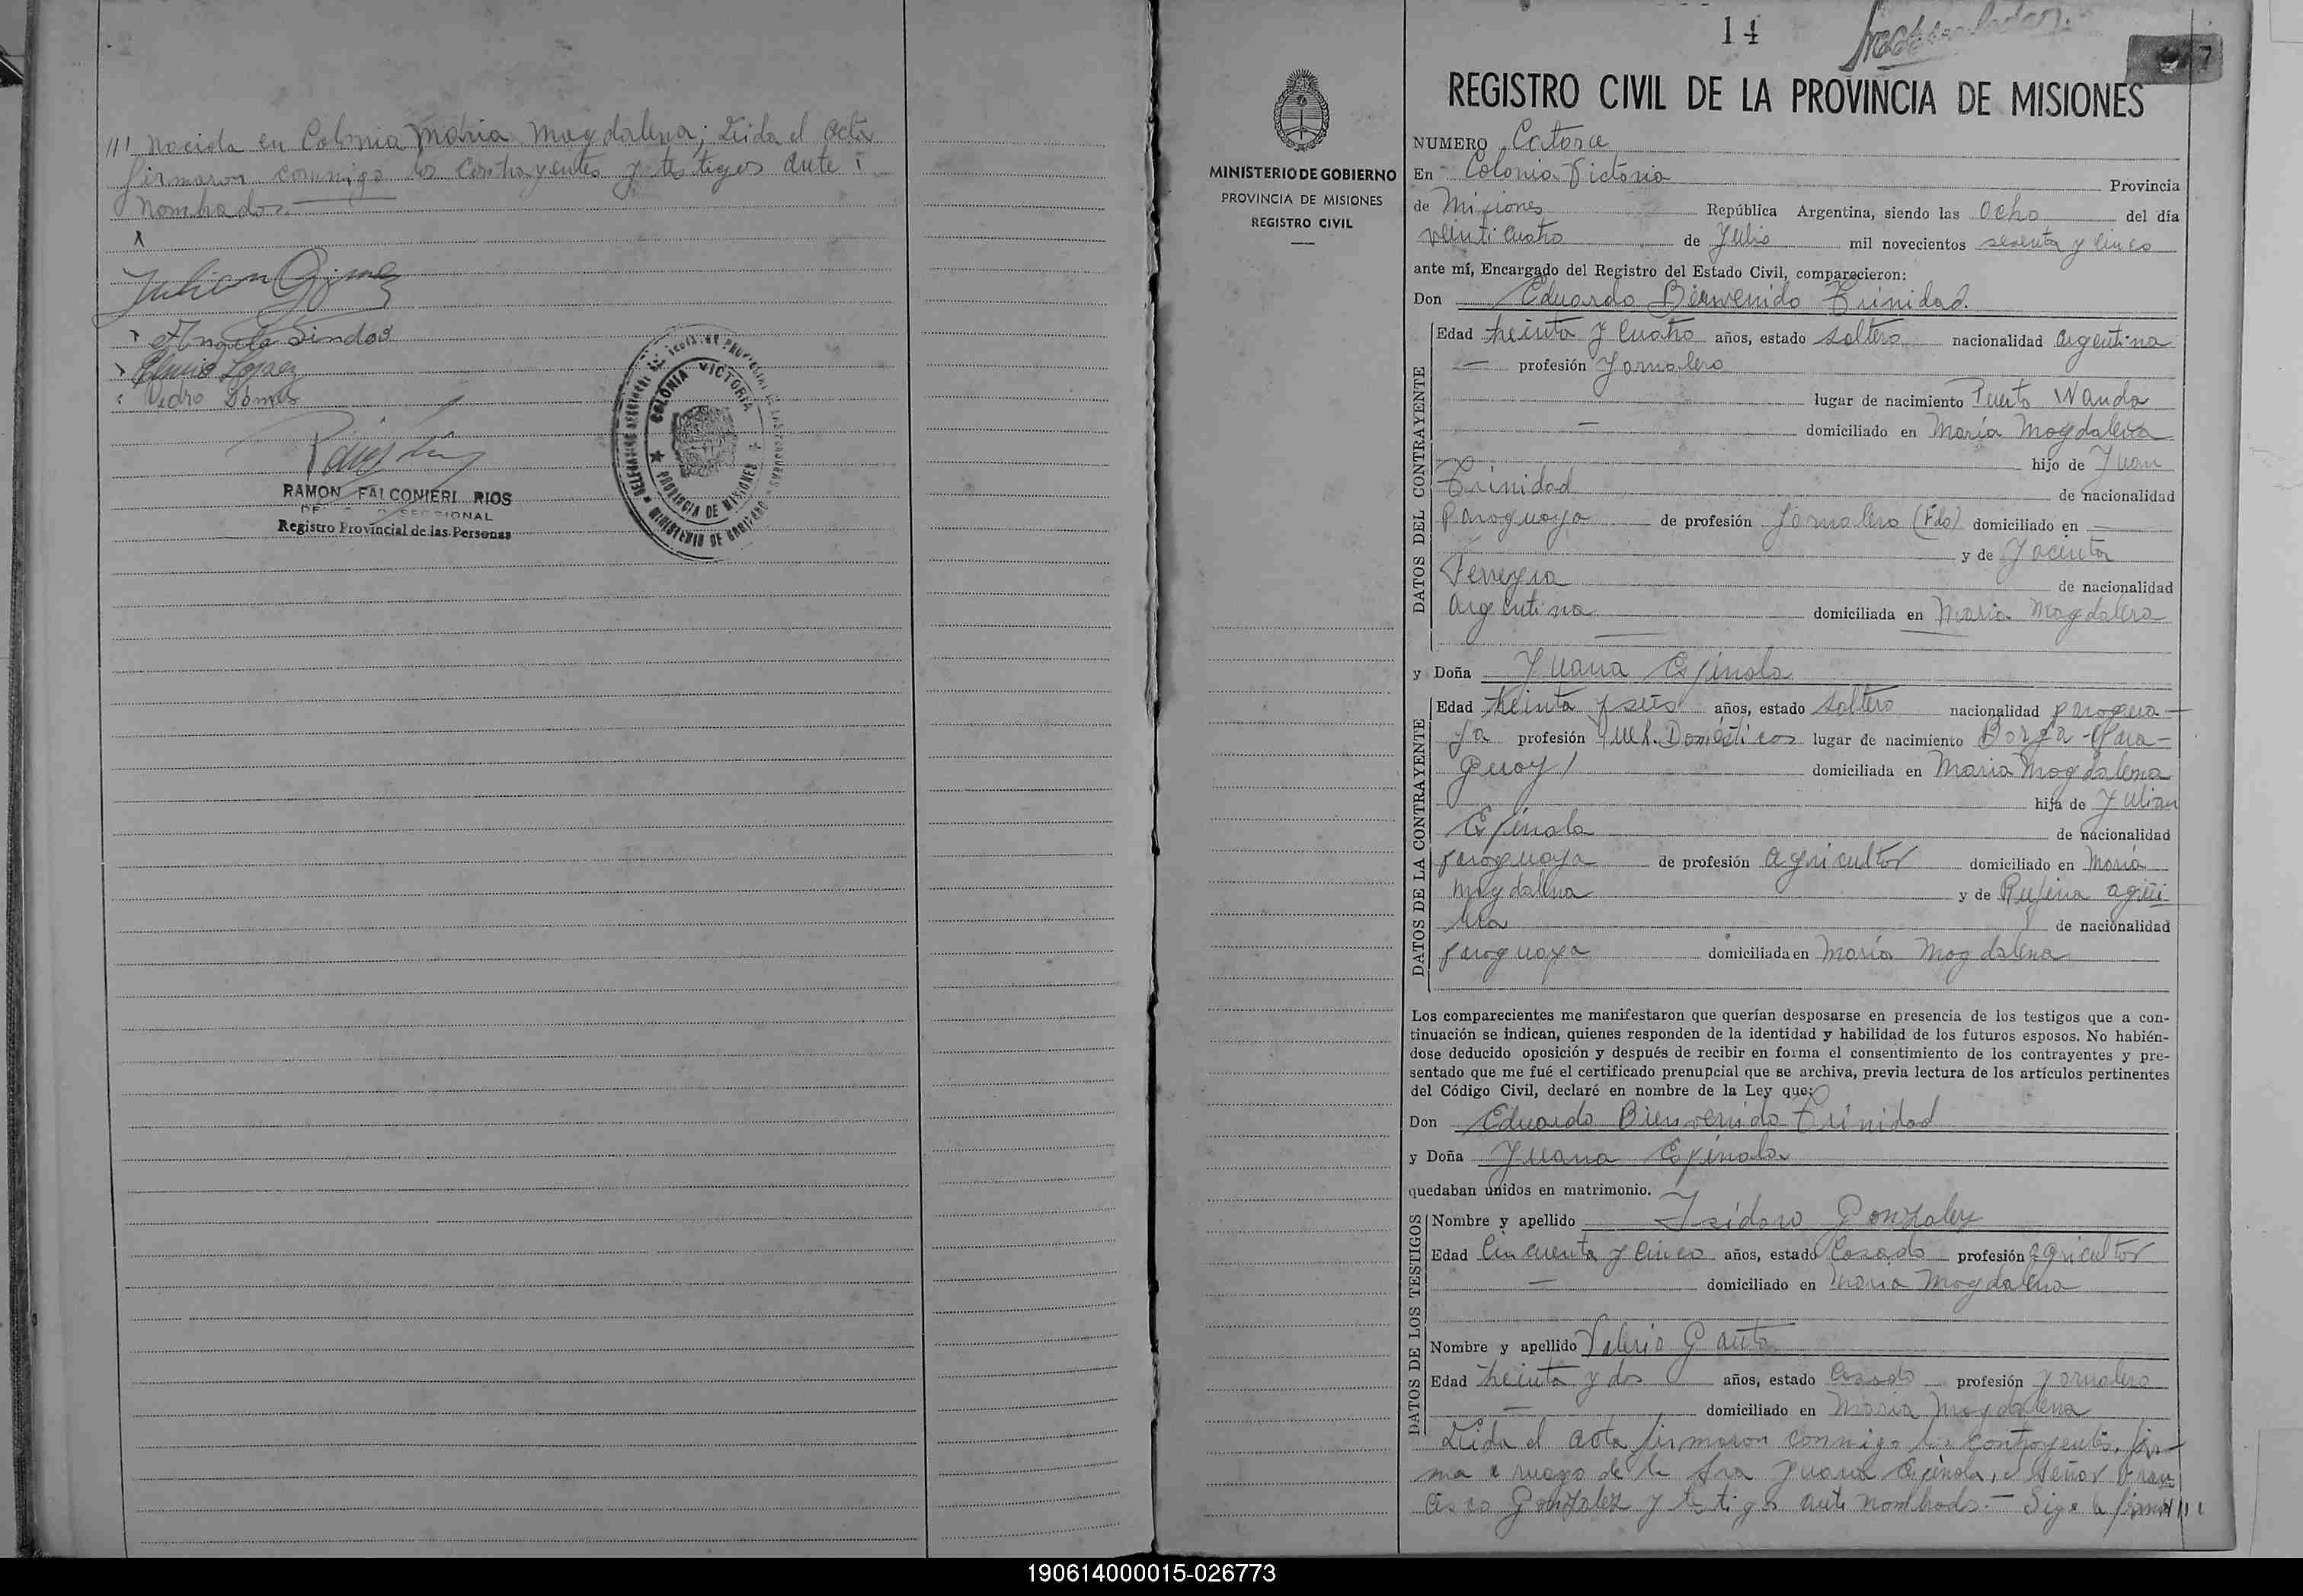 /// nacida en Colonia Maria Magdalena; Leida el acta
firmaron conmigo los contrayentes y testigos ante
nombrados.
Julian Gimenez
Lopez
Pedro Gomes
RAMON FALCONIERI RIOS
SECCIONAL
Registro Provincial de las Personas
COLONIA VICTORIA
PROVINCIA DE MISIONES
MINISTERIO DE GOBIERNO
14
7
REGISTRO CIVIL DE LA PROVINCIA DE MISIONES
MINISTERIO DE GOBIERNO
PROVINCIA DE MISIONES
REGISTRO CIVIL
NUMERO Catorce
En Colonia Victoria Provincia
de Misiones República Argentina, siendo las Ocho del día
veinticuatro de Julio mil novecientos sesenta y cinco
ante mí, Encargado del Registro del Estado Civil, comparecieron:
Don Eduardo Bienvenido Trinidad.
DATOS DEL CONTRAYENTE
Edad treinta y cuatro años, estado soltero nacionalidad argentina
— profesión Jornalero
lugar de nacimiento Puerto Wanda
— domiciliado en María Magdalena
hijo de Juan
Trinidad de nacionalidad
Paraguaya de profesión Jornalero (Fdo) domiciliado en —
y de Jacinta
Ferreyra de nacionalidad
argentina domiciliada en Maria Magdalena
y Doña Juana Espinola
DATOS DE LA CONTRAYENTE
Edad treinta y seis años, estado soltera nacionalidad paragua-
ya profesión Queh. Domésticos lugar de nacimiento Borja - (Para-
guay) domiciliada en Maria Magdalena
hija de Julian
Espinola de nacionalidad
paraguaya de profesión agricultor domiciliado en María
Magdalena y de Rufina agüi
lera de nacionalidad
paraguaya domiciliada en María Magdalena
Los comparecientes me manifestaron que querían desposarse en presencia de los testigos que a con-
tinuación se indican, quienes responden de la identidad y habilidad de los futuros esposos. No habién-
dose deducido oposición y después de recibir en forma el consentimiento de los contrayentes y pre-
sentado que me fué el certificado prenupcial que se archiva, previa lectura de los artículos pertinentes
del Código Civil, declaré en nombre de la Ley que:
Don Eduardo Bienvenido Trinidad
y Doña Juana Espinola
quedaban unidos en matrimonio.
DATOS DE LOS TESTIGOS
Nombre y apellido Isidoro Gonzalez
Edad Cincuenta y cinco años, estado Casado profesión agricultor
— domiciliado en María Magdalena
Nombre y apellido Valerio Gauto
Edad treinta y dos años, estado Casado profesión Jornalero
— domiciliado en Maria Magdalena
Leida el acta firmaron conmigo los contrayentes, fir-
ma a ruego de la Sra Juana Espinola, el Señor Fran
cisco Gonzalez y testigos ante nombrados. — Sige la firma ///
190614000015-026773